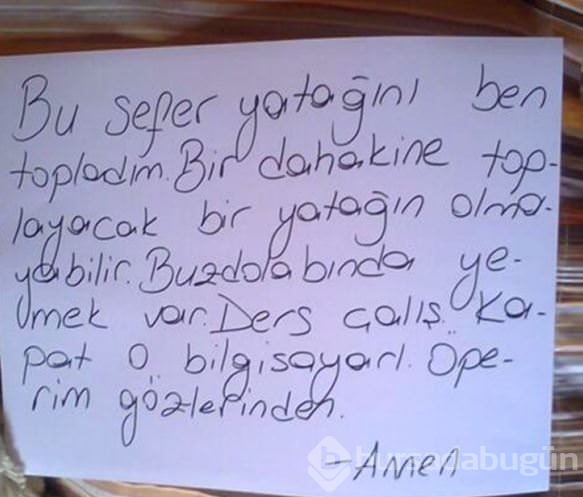 Bu sefer yatağını ben
topladım. Bir dahakine top-
layacak bir yatağın olma-
yabilir. Buzdolabında ye-
mek var. Ders çalış. Ka-
pat o bilgisayarı. Öpe-
rim gözlerinden.
-Annen
bursadabugün